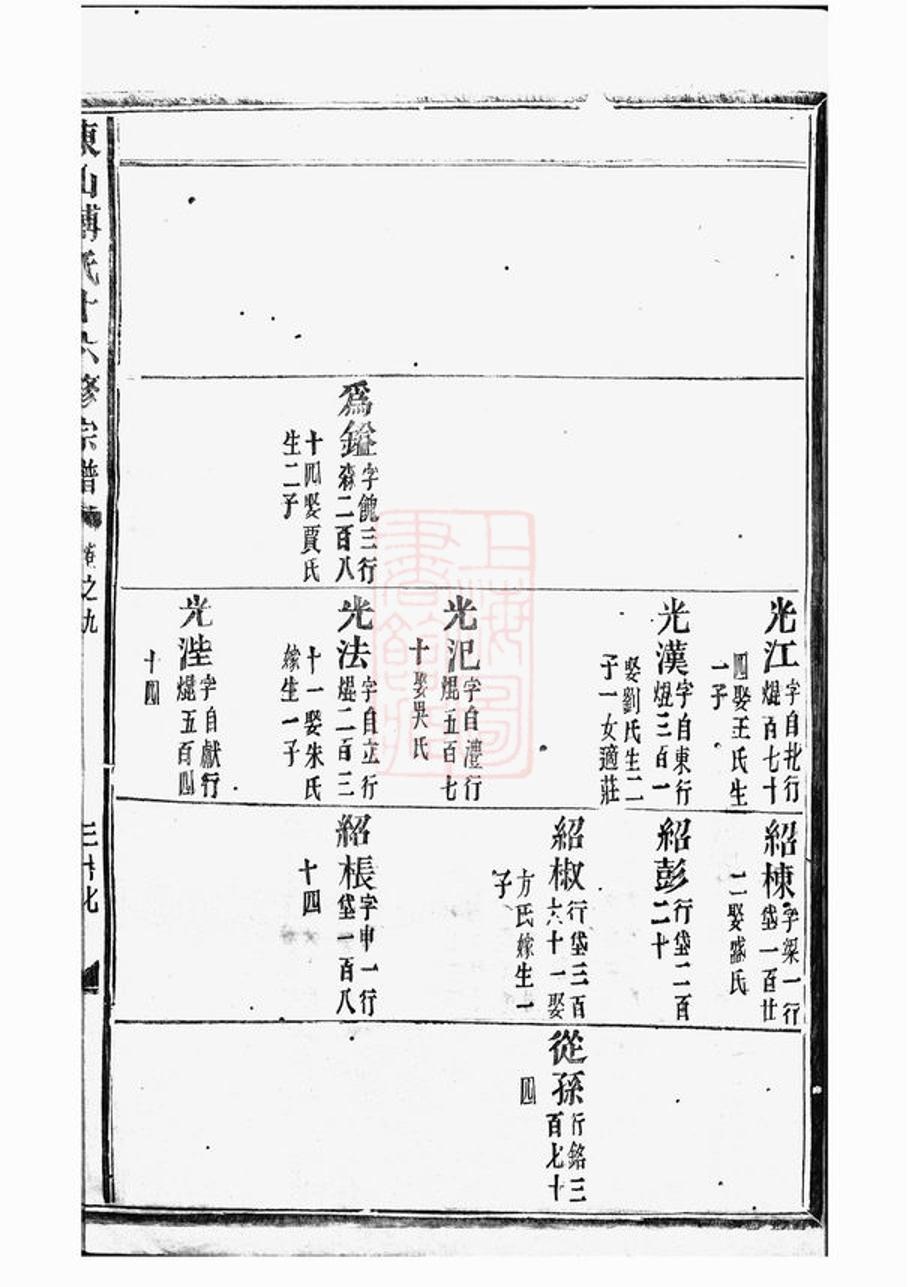 爲鎰
字餽三行
森二百八
十四娶賈氏
生二子
光江
字自北行
焜百七十
四娶王氏生
一子
光漢
字自東行
焜三百一
娶劉氏生二
子一女適莊
光汜
字自澧行
焜五百七
十娶吳氏
光法
字自立行
焜二百三
十一娶朱氏
嫁生一子
光湴
字自獻行
焜五百四
十四
紹棟
字榘一行
垡一百廿
二娶盛氏
紹彭
行垡二百
二十
紹椒
行垡三百
六十一娶
方氏嫁生一
子
紹棖
字申一行
垡一百八
十四
從孫
行銘三
百七十
四
東山傅氏十六修宗譜
卷之九
三十七
上海圖書館藏